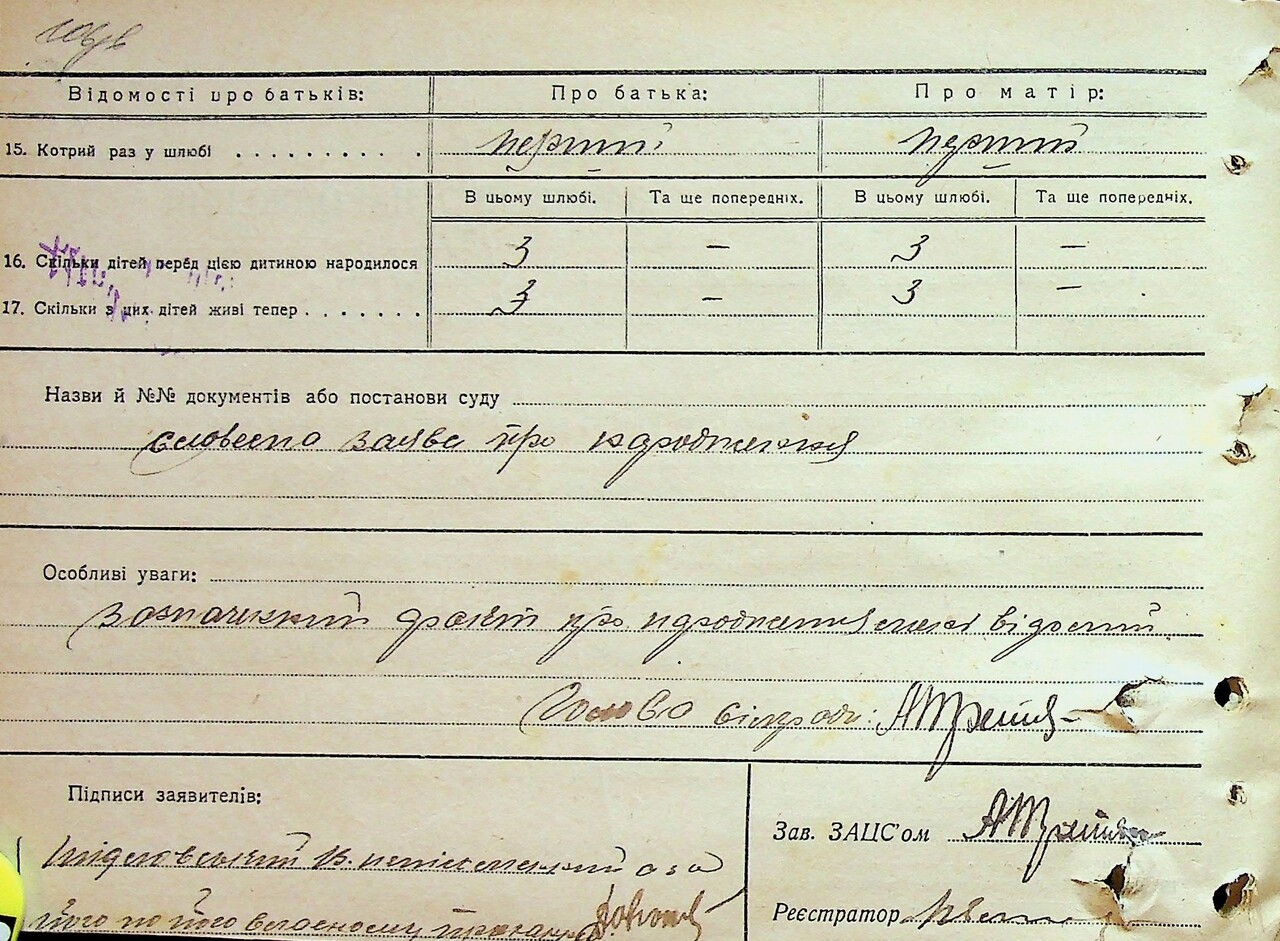 Відомості про батьків: Про батька: Про матір:
15. Котрий раз у шлюбі . . . . . . . . . . перший перший
В цьому шлюбі. Та ще попередніх. В цьому шлюбі. Та ще попередніх.
16. Скільки дітей перед цією дитиною народилося 3 — 3 —
17. Скільки з цих дітей живі тепер . . . . . . . 3 — 3 —
Назви й №№ документів або постанови суду
словесна заява про народження
Особливі уваги:
зазначений факт про народження мені відомий
Голова сільради:
Підписи заявителів:
неписьменний а за
його по його власному проханню
Зав. ЗАЦС'ом
Реєстратор